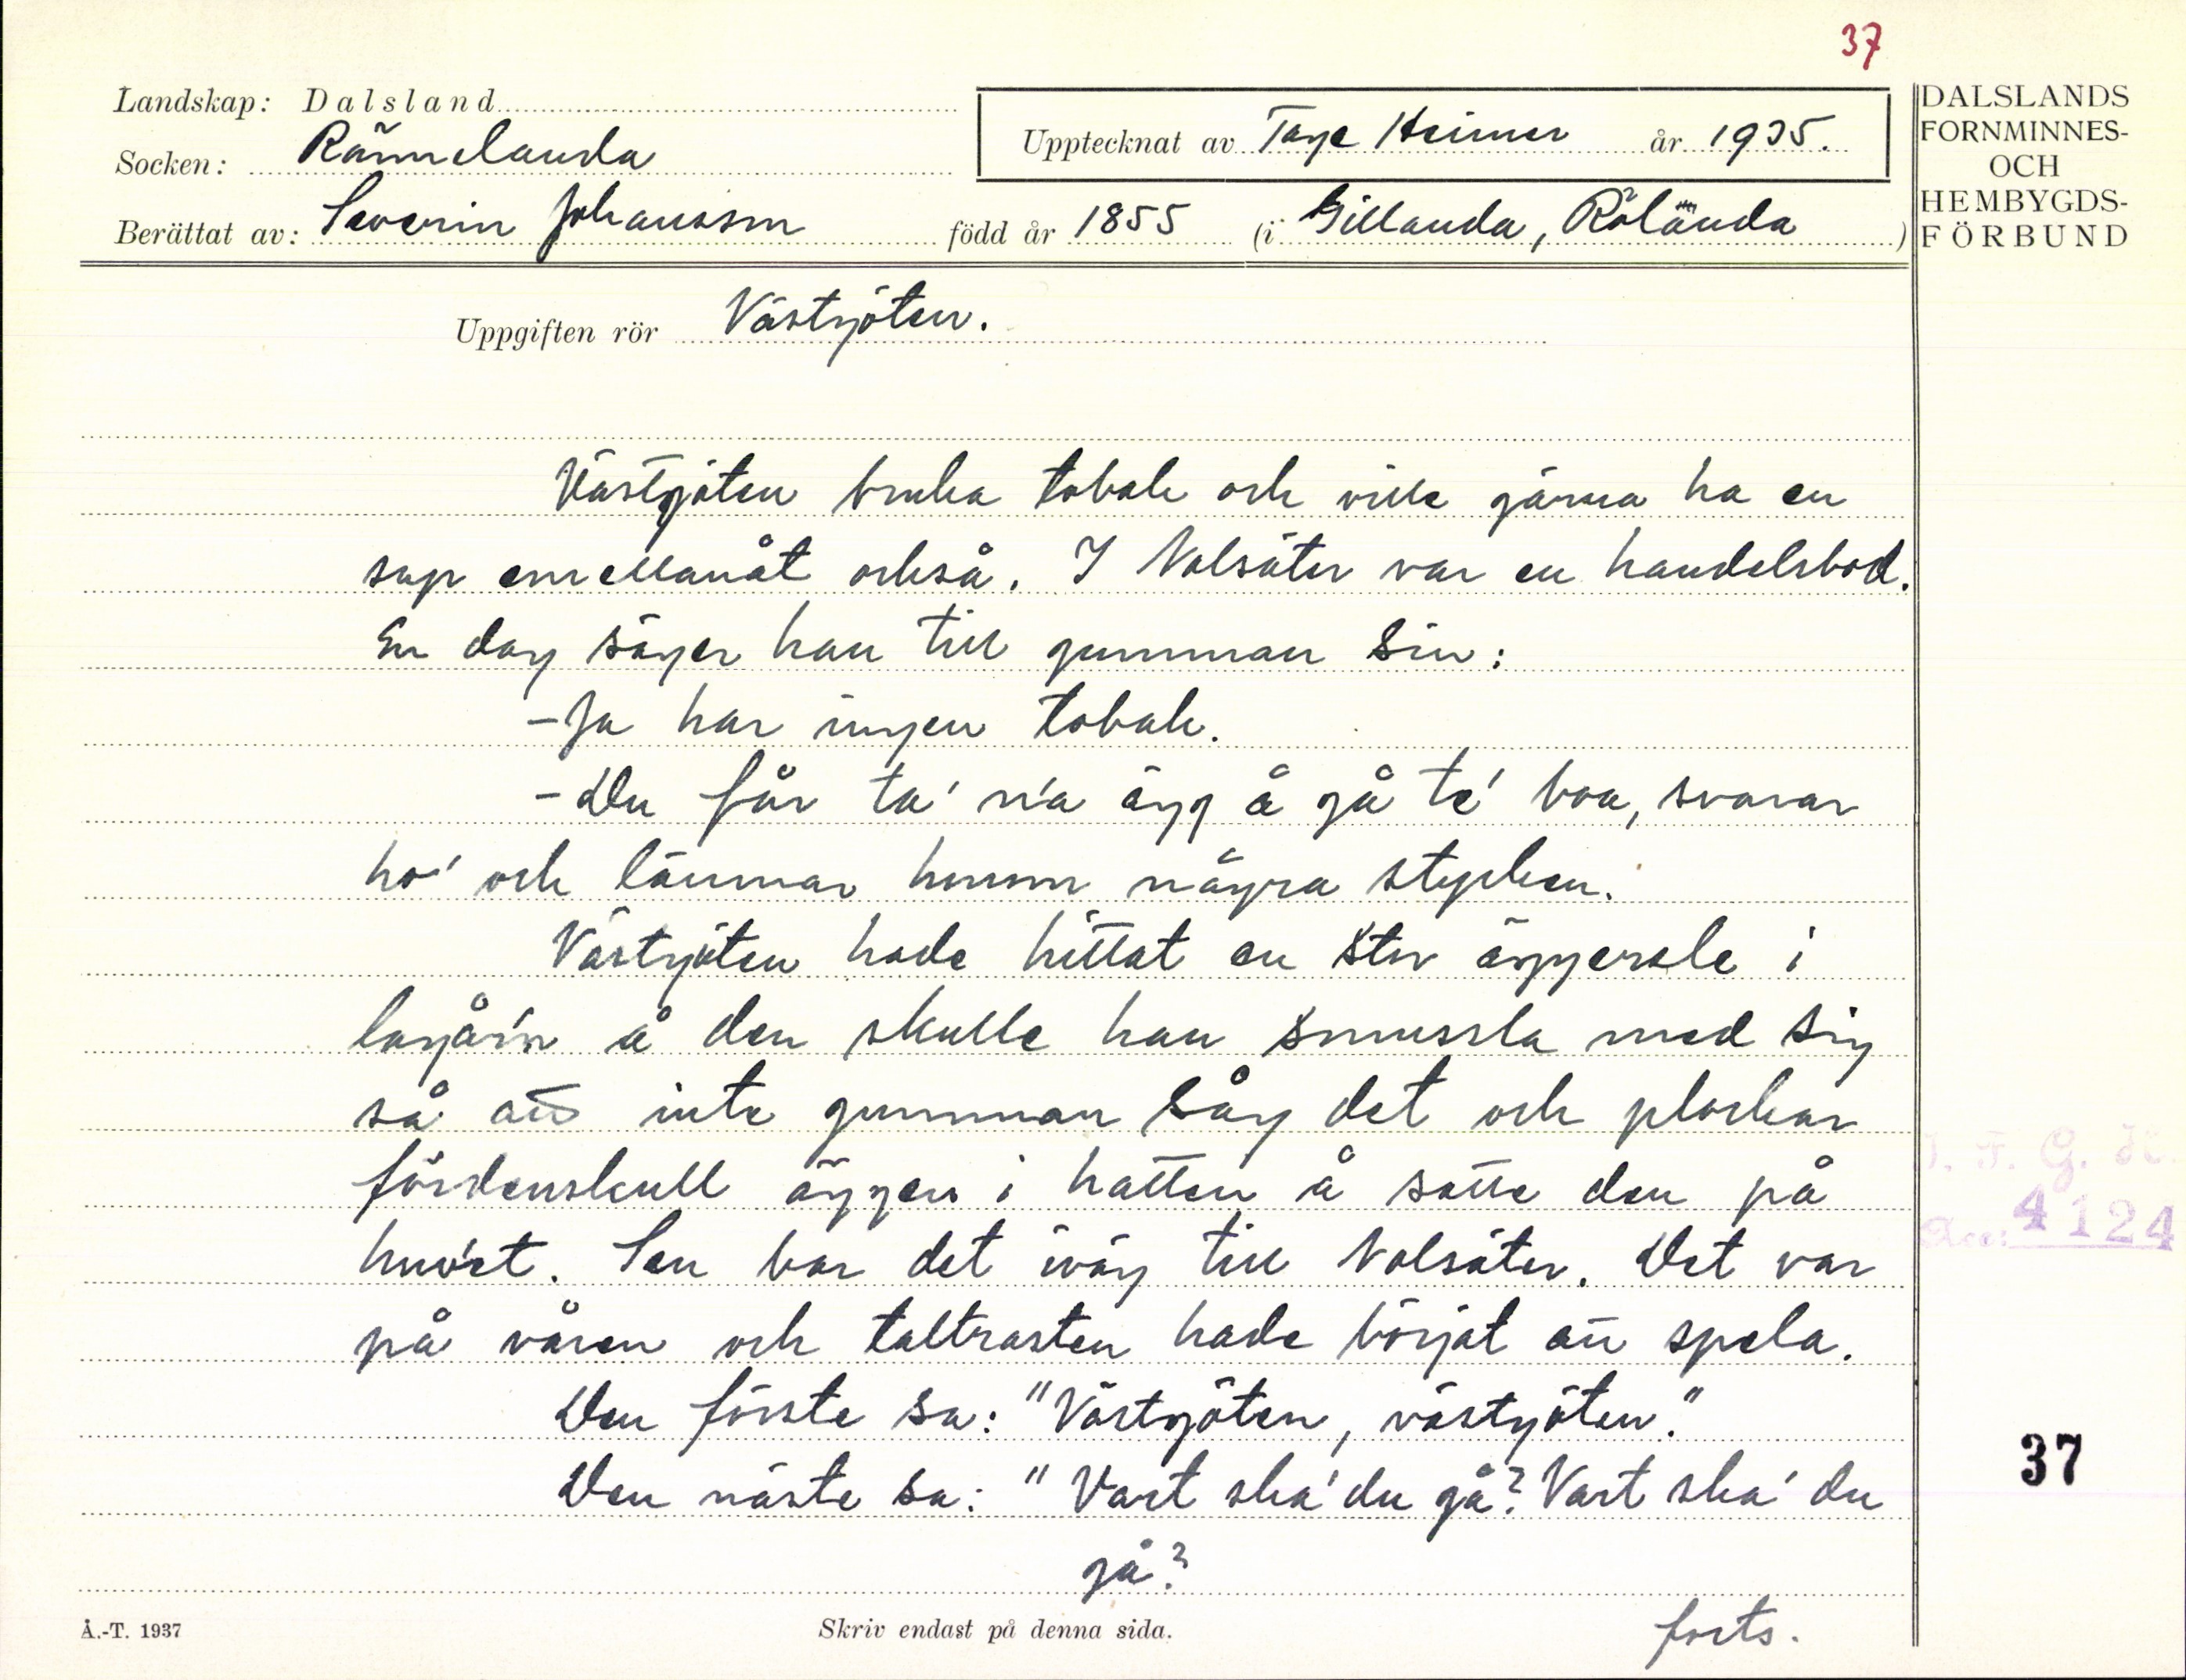 37
Landskap: Dalsland
Socken: Rännelanda
Berättat av: Severin Johansson född år 1855 (i Gillanda, Rölanda)
Upptecknat av Tage Heimer år 1935.
DALSLANDS
FORNMINNES-
OCH
HEMBYGDS-
FÖRBUND
Uppgiften rör Västgöten.
Västgöten bruka tobak och ville gärna ha en
sup emellanåt också. I Valsäter var en handelsbod.
En dag säger han till gumman sin:
-Ja har ingen tobak.
-Du får ta' n'a ägg å gå te' boa, svarar
ho' och lämnar honom några stycken.
Västgöten hade hittat en stor äggerele i
lagår'n å den skulle han smussla med sig
så att inte gumman såg det och plockar
fördenskull äggen i hatten å satte den på
huv'et. Sen bar det iväg till Valsäter. Det var
på våren och taltrasten hade börjat att spela.
Den förste sa: "Västgöten, västgöten."
Den näste sa: "Vart ska' du gå? Vart ska' du
gå?
forts.
I. F. G. H.
Acc: 4124
37
Å.-T. 1937
Skriv endast på denna sida.